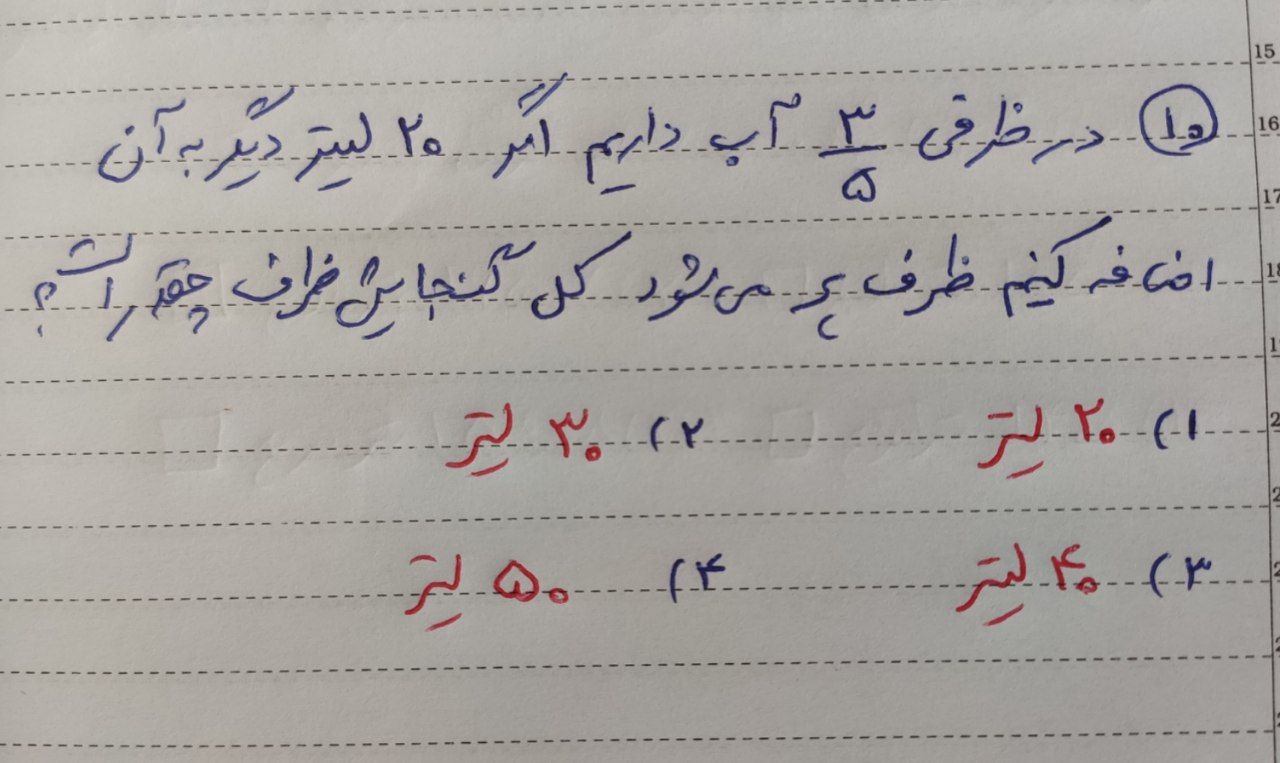 ۱۰ در ظرفی ۳/۵ آب داریم اگر ۲۰ لیتر دیگر به آن
اضافه کنیم ظرف پر می‌شود کل گنجایش ظرف چقدر است؟
۱) ۲۰ لیتر ۲) ۳۰ لیتر
۳) ۴۰ لیتر ۴) ۵۰ لیتر
15
16
17
18